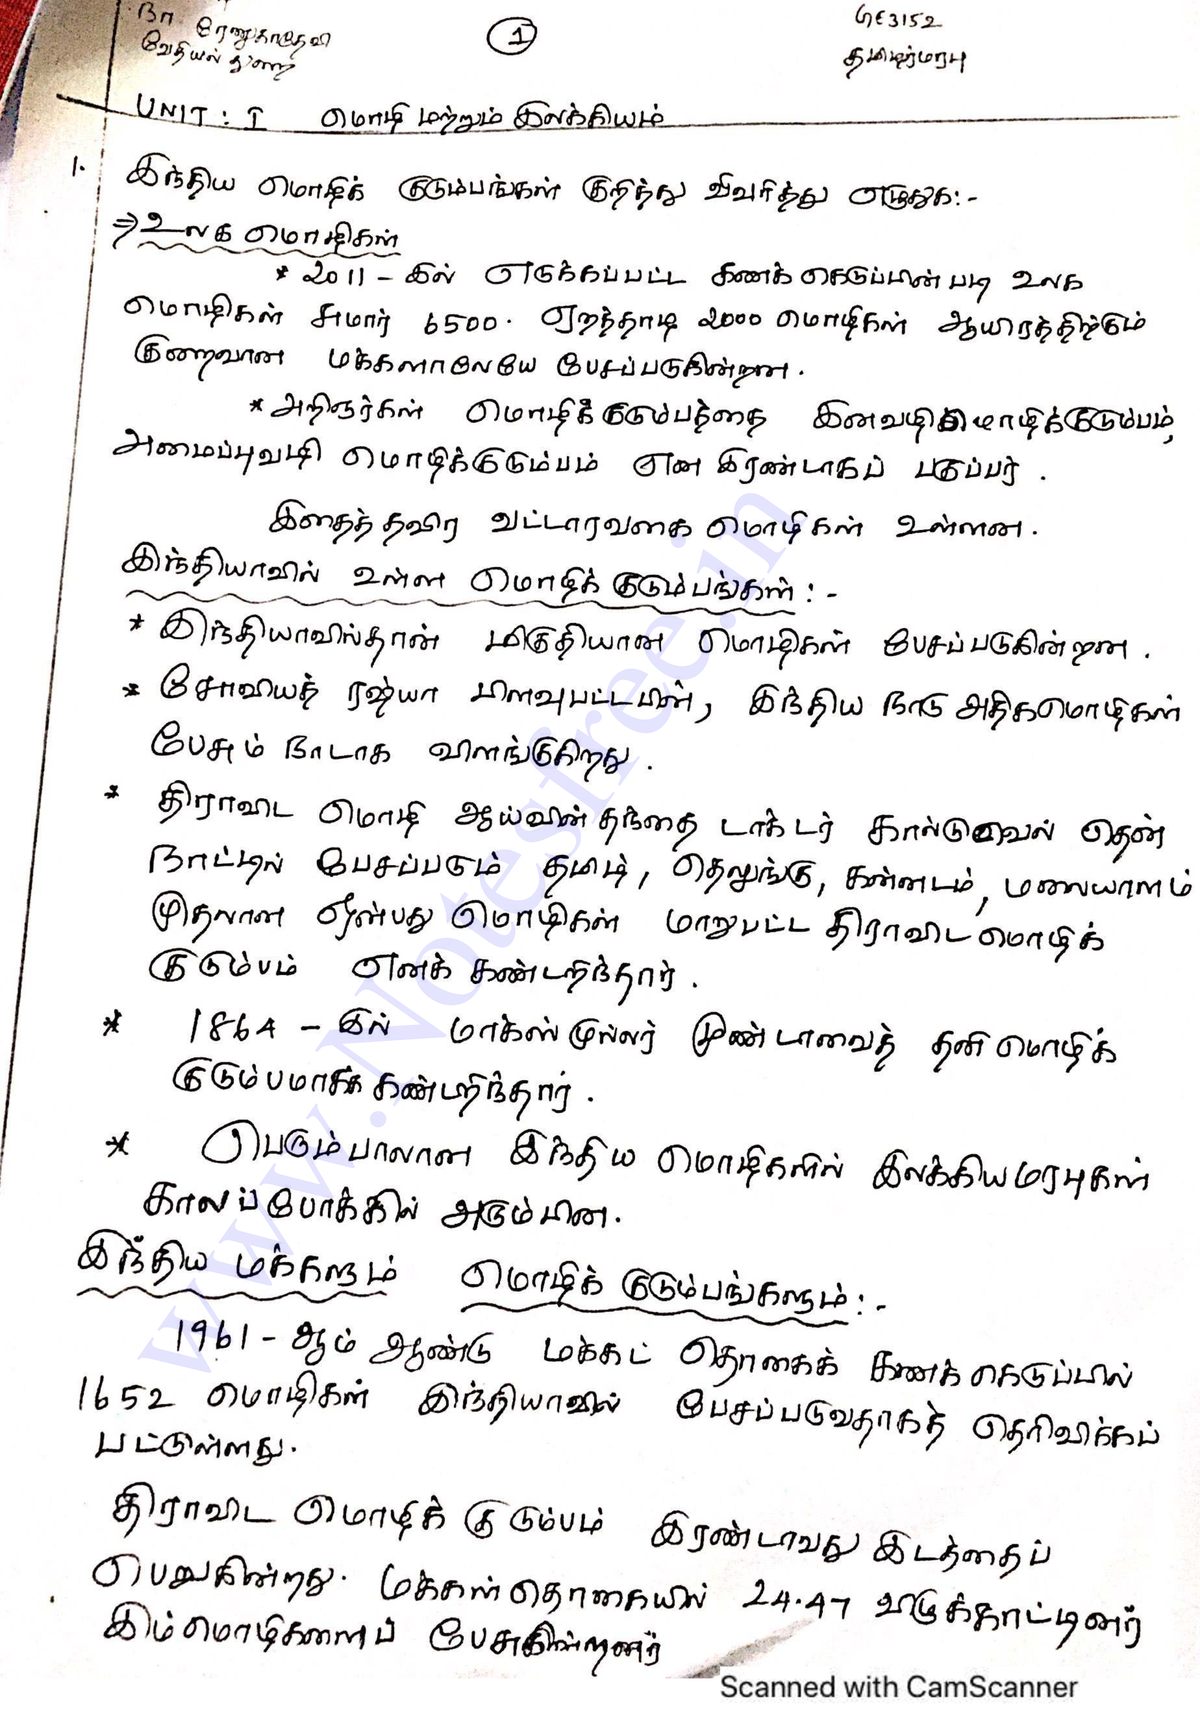 நா ரேணுகாதேவி
வேதியல் துறை
1
GE3152
தமிழர்மரபு
UNIT : I மொழி மற்றும் இலக்கியம்
1. இந்திய மொழிக் குடும்பங்கள் குறித்து விவரித்து எழுதுக:-
⇒ உலக மொழிகள்
* 2011 - இல் எடுக்கப்பட்ட கணக்கெடுப்பின் படி உலக
மொழிகள் சுமார் 6500. ஏறத்தாடி 2000 மொழிகள் ஆயிரத்திற்கும்
குறைவான மக்களாலேயே பேசப்படுகின்றன.
* அறிஞர்கள் மொழிக்குடும்பத்தை இனவழிமொழிக்குடும்பம்,
அமைப்புவழி மொழிக்குடும்பம் என இரண்டாகப் பகுப்பர்.
இதைத் தவிர வட்டாரவகை மொழிகள் உள்ளன.
இந்தியாவில் உள்ள மொழிக் குடும்பங்கள் :-
* இந்தியாவில்தான் மிகுதியான மொழிகள் பேசப்படுகின்றன.
* சோவியத் ரஷ்யா பிளவுபட்டபின், இந்திய நாடு அதிகமொழிகள்
பேசும் நாடாக விளங்குகிறது.
* திராவிட மொழி ஆய்வின் தந்தை டாக்டர் கால்டுவெல் தென்
நாட்டில் பேசப்படும் தமிழ், தெலுங்கு, கன்னடம், மலையாளம்
முதலான ஒன்பது மொழிகள் மாறுபட்ட திராவிடமொழிக்
குடும்பம் எனக் கண்டறிந்தார்.
* 1864 - இல் மாக்ஸ் முல்லர் முண்டாவைத் தனி மொழிக்
குடும்பமாகக் கண்டறிந்தார்.
* பெரும்பாலான இந்திய மொழிகளில் இலக்கியமரபுகள்
காலப்போக்கில் அரும்பின.
இந்திய மக்களும் மொழிக் குடும்பங்களும் :-
1961 - ஆம் ஆண்டு மக்கட் தொகைக் கணக்கெடுப்பில்
1652 மொழிகள் இந்தியாவில் பேசப்படுவதாகத் தெரிவிக்கப்
பட்டுள்ளது.
திராவிட மொழிக் குடும்பம் இரண்டாவது இடத்தைப்
பெறுகின்றது. மக்கள் தொகையில் 24.47 விழுக்காட்டினர்
இம்மொழிகளைப் பேசுகின்றனர்
www.Notesfree.in
Scanned with CamScanner